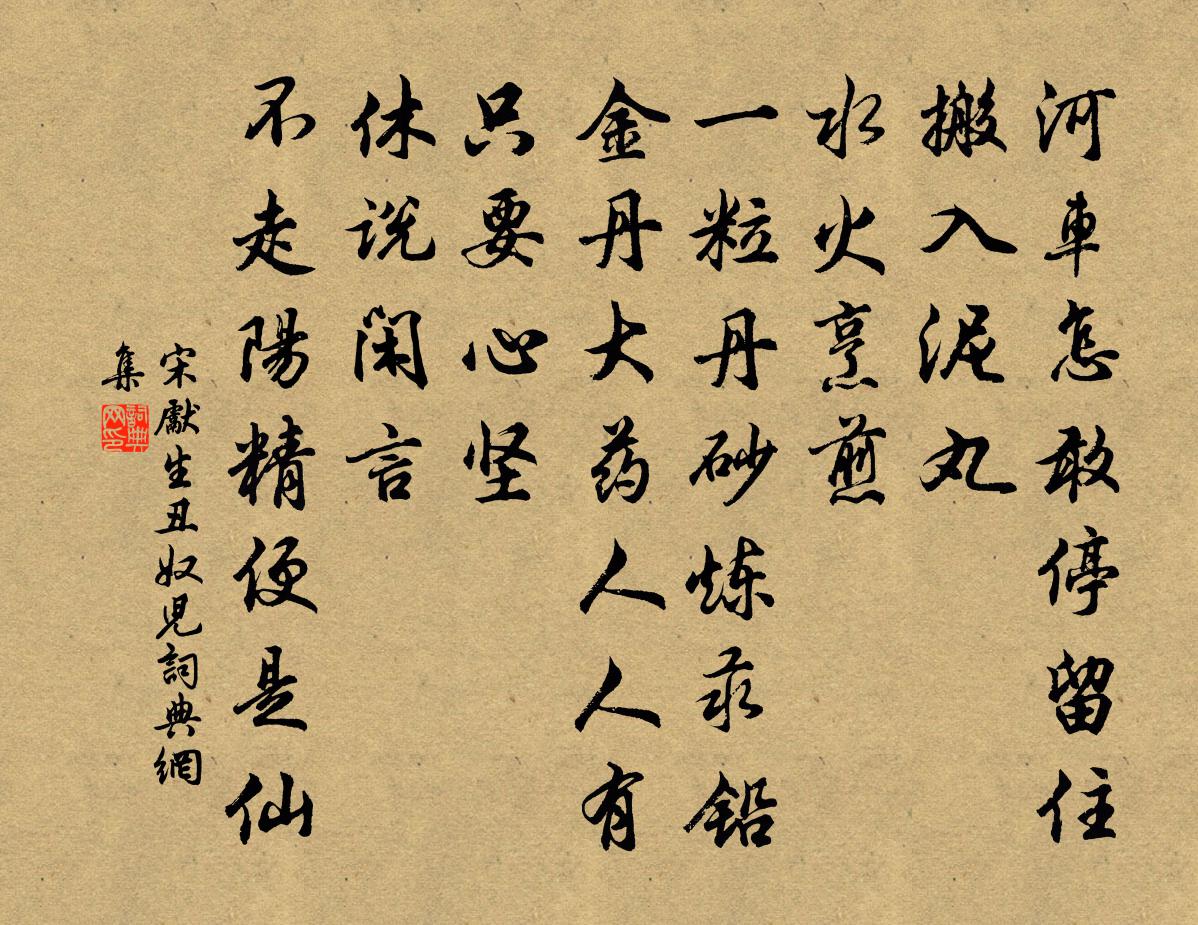 河車怎敢停留住
搬入泥丸
水火烹煎
一粒丹砂炼汞铅
金丹大药人人有
只要心坚
休说闲言
不走陽精便是仙
宋獻生丑奴児詞典網
集
詞典
网印